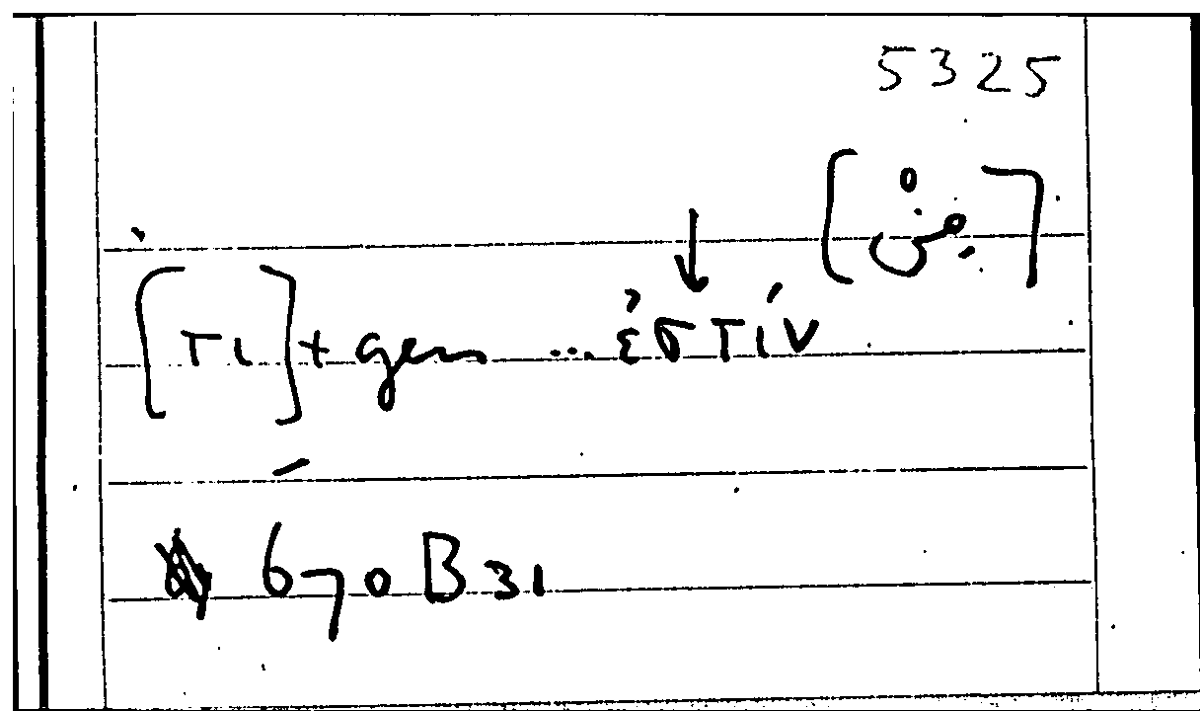 5325
[مِنْ]
↓
[τι] + gen ... ἐστίν
670 B 31